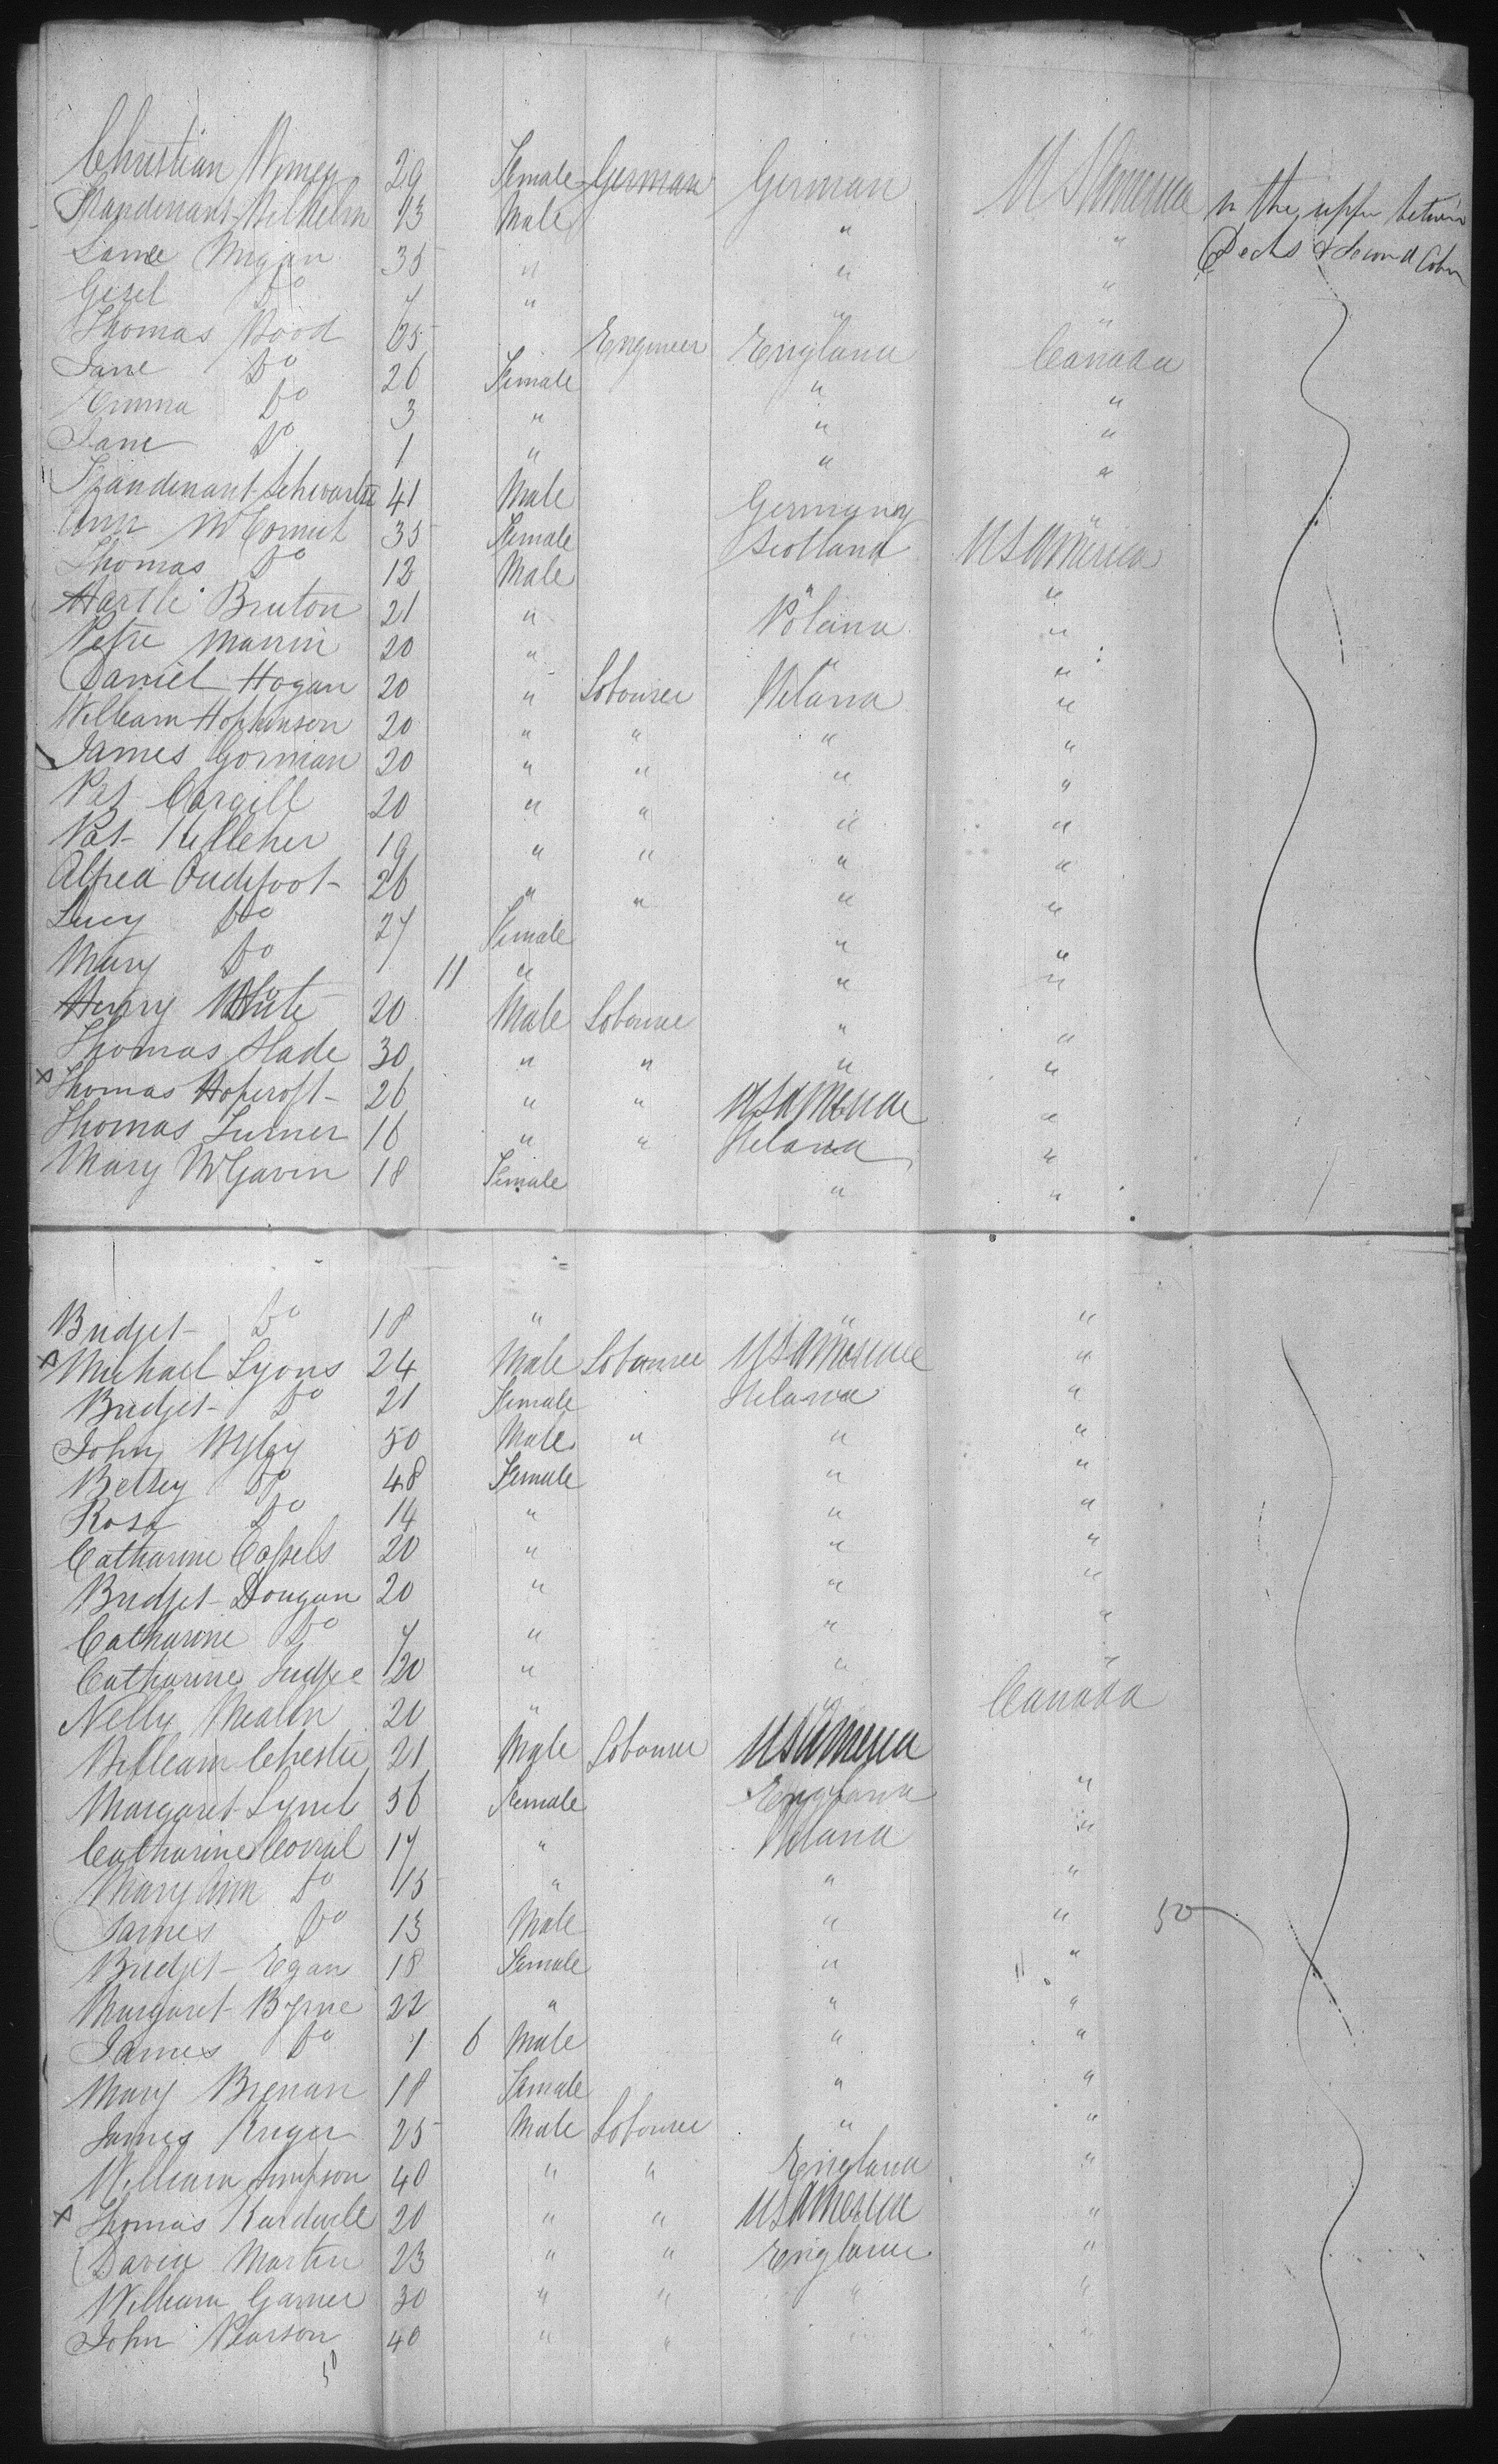 Christian 29 Female German German U S America in the upper between
Wilhelm 13 Male " " Decks & Second Cabin
35 " " "
Do 7 " " "
Thomas Wood 25 Engineer England Canada
Jane Do 26 Female " "
Emma Do 3 " " "
Jane Do 1 " " "
41 Male Germany "
Ann 35 Female Scotland U S America
Thomas Do 12 Male " "
Bruton 21 " Poland "
20 " " "
Daniel Hogan 20 " Labourer Ireland "
William Hopkinson 20 " " " "
James Gorman 20 " " " "
Pat Cargill 20 " " " "
Pat Kelleher 19 " " " "
Alfred 26 " " " "
Lucy Do 27 Female " "
Mary Do 11 " " "
Henry White 20 Male Labourer " "
Thomas Slade 30 " " " "
x Thomas Hopcroft 26 " " U S America "
Thomas Turner 16 " " Ireland "
Mary McGavin 18 Female " "
Bridget Do 18 " " "
x Michael Lyons 24 Male Labourer U S America "
Bridget Do 21 Female Ireland "
John 50 Male " " "
Betsey Do 48 Female " "
Rosa Do 14 " " "
Catharine Cassels 20 " " "
Bridget Dougan 20 " " "
Catharine Do 7 " " "
Catharine Judge 20 " " "
Nelly 20 " " Canada
William 21 Male Labourer U S America
Margaret 56 Female England "
Catharine 17 " Ireland "
Mary Ann Do 15 " " "
James Do 13 Male " " 50
Bridget Egan 18 Female " "
Margaret Byrne 22 " " "
James Do 1 6 Male " "
Mary Brenan 18 Female " "
James 25 Male Labourer " "
William Simpson 40 " " England "
x Thomas 20 " " U S America "
David Martin 23 " " England "
William Garner 30 " " " "
John Pearson 40 " " " "
50